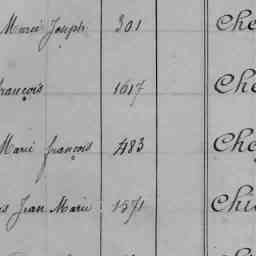 Marie Joseph 301 Che
françois 1617 Che
Marie françois 483 Che
Jean Marie 1571 Che